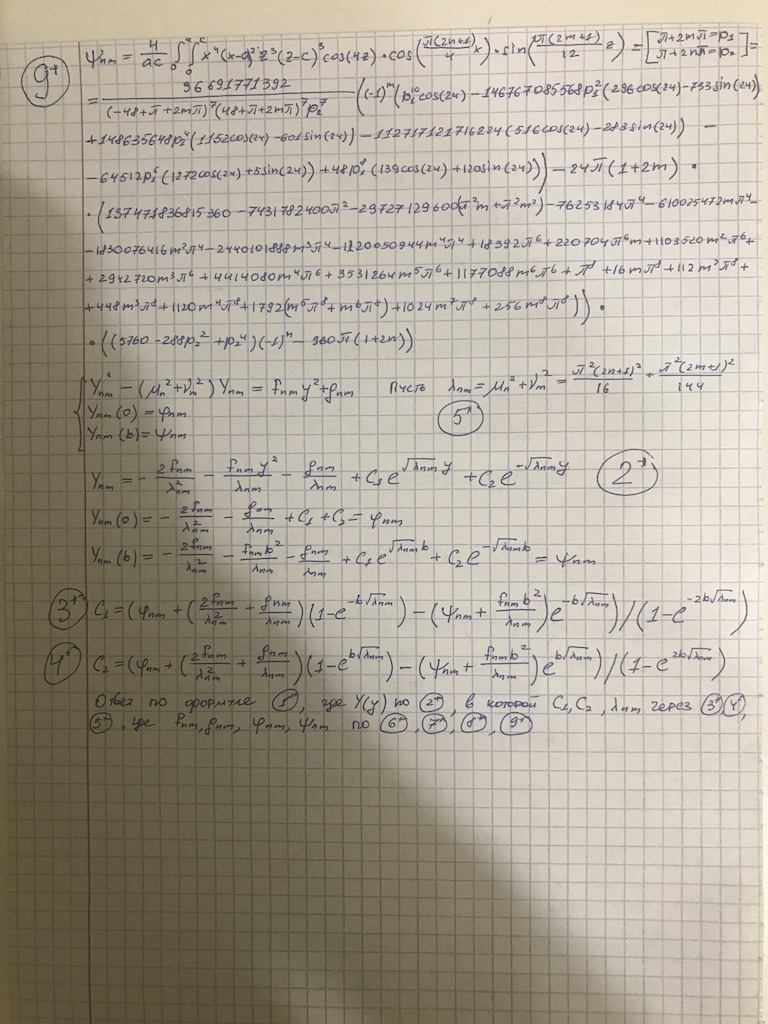 9⁺ Ψnm = 4/ac ∫₀ᵃ∫₀ᶜ x⁴(x-a)² z³(z-c)³ cos(4z)·cos(π(2n+1)/4 x)·sin(π(2m+1)/12 z) = [π+2mπ=p₁ π+2nπ=p₂] =
= 96691771392/((-48+π+2mπ)⁷(48+π+2mπ)⁷p₂⁷) ((-1)ᵐ(p₁¹⁰cos(24) - 146767085568p₁²(296cos(24)-733sin(24))
+148635648p₁⁴(1152cos(24)-601sin(24)) - 112717121716224(516cos(24)-283sin(24)) -
-64512p₁⁶(1272cos(24)+5sin(24)) + 48p₁⁸(139cos(24)+120sin(24))) - 24π(1+2m) ·
·(137471836815360 - 7431782400π² - 29727129600(π²m+π²m²) - 76253184π⁴ - 610025472mπ⁴ -
-1830076416m²π⁴ - 2440101888m³π⁴ - 1220050944m⁴π⁴ + 18392π⁶ + 220704π⁶m + 1103520m²π⁶ +
+2942720m³π⁶ + 4414080m⁴π⁶ + 3531264m⁵π⁶ + 1177088m⁶π⁶ + π⁸ + 16mπ⁸ + 112m²π⁸ +
+448m³π⁸ + 1120m⁴π⁸ + 1792(m⁵π⁸+m⁶π⁸) + 1024m⁷π⁸ + 256m⁸π⁸)) ·
·((5760-288p₂²+p₂⁴)(-1)ⁿ - 960π(1+2n))
{ Y''nm - (μn²+νm²) Ynm = fnm y²+gnm Пусть λnm = μn²+νm² = π²(2n+1)²/16 + π²(2m+1)²/144
Ynm(0) = φnm 5⁺
Ynm(b) = ψnm
Ynm = - 2fnm/λ²nm - fnm y²/λnm - gnm/λnm + C₁e^(√λnm y) + C₂e^(-√λnm y) 2⁺
Ynm(0) = - 2fnm/λ²nm - gnm/λnm + C₁ + C₂ = φnm
Ynm(b) = - 2fnm/λ²nm - fnm b²/λnm - gnm/λnm + C₁e^(√λnm b) + C₂e^(-√λnm b) = ψnm
3⁺ C₁ = (φnm + (2fnm/λ²nm + gnm/λnm)(1-e^(-b√λnm)) - (ψnm + fnm b²/λnm)e^(-b√λnm))/(1-e^(-2b√λnm))
4⁺ C₂ = (φnm + (2fnm/λ²nm + gnm/λnm)(1-e^(b√λnm)) - (ψnm + fnm b²/λnm)e^(b√λnm))/(1-e^(2b√λnm))
Ответ по формуле 1⁺, где Y(y) по 2⁺, в которой C₁, C₂, λnm через 3⁺ 4⁺,
5⁺, где fnm, gnm, φnm, ψnm по 6⁺, 7⁺, 8⁺, 9⁺